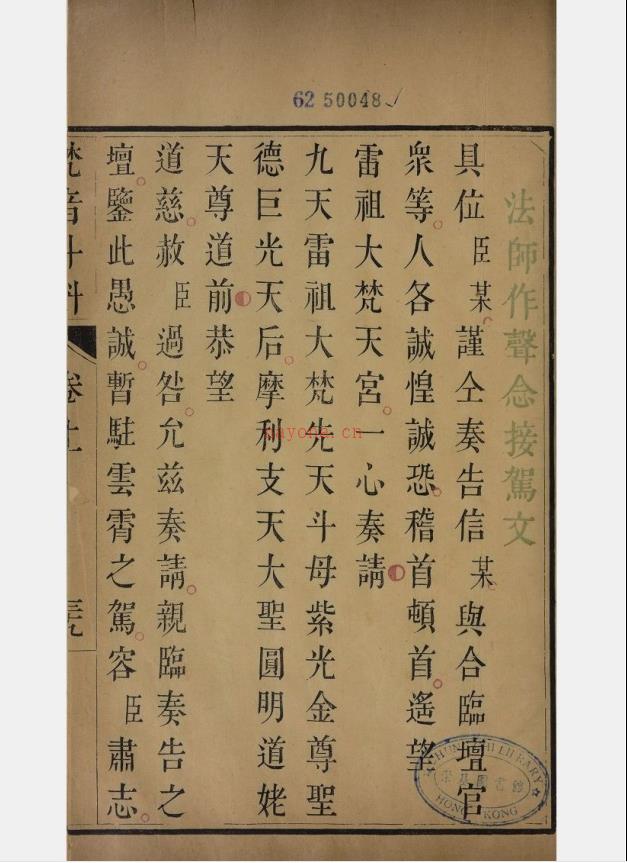 62 50048
法師作聲念接駕文
具位臣某謹仝奏告信某與合臨壇官
衆等人各誠惶誠恐稽首頓首遙望
雷祖大梵天宮一心奏請
九天雷祖大梵先天斗母紫光金尊聖
德巨光天后摩利支天大聖圓明道姥
天尊道前恭望
道慈赦臣過咎允兹奏請親臨奏告之
壇鑒此愚誠暫駐雲霄之駕容臣肅志
梵音斗科 卷上
HONG KONG